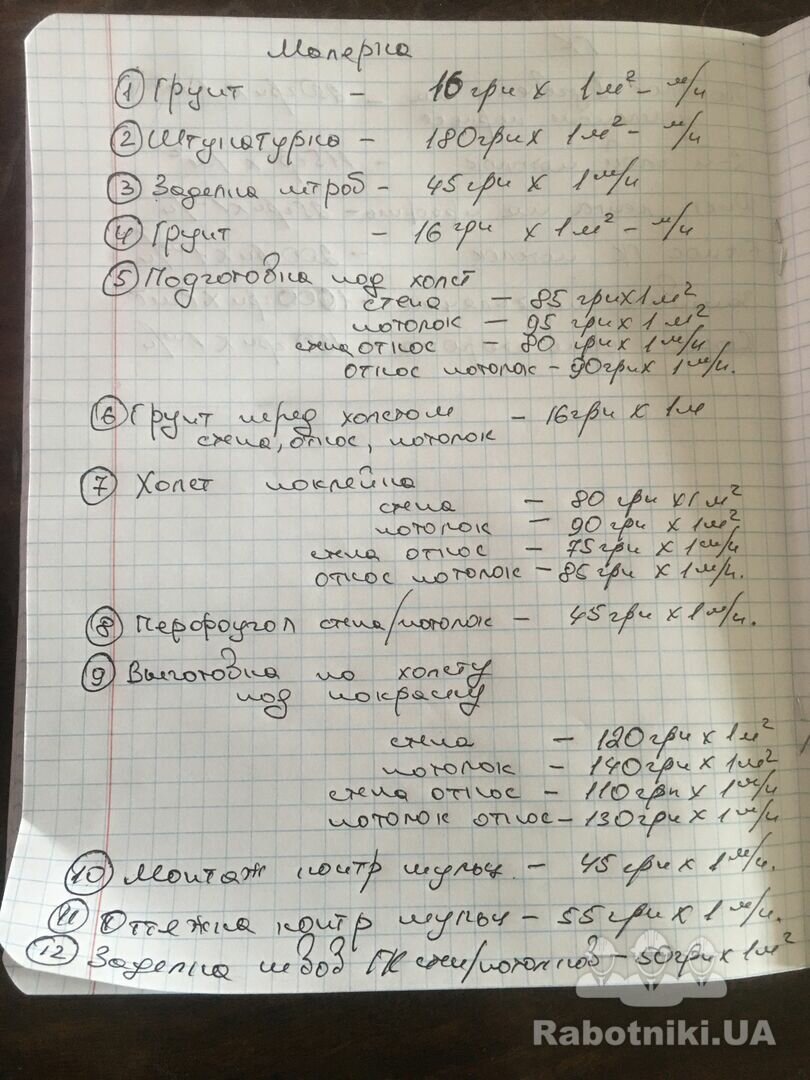 Малерка
① Грунт - 16 грн х 1м² - м/п
② Штукатурка - 180 грн х 1м² - м/п
③ Заделка штроб - 45 грн х 1 м/п
④ Грунт - 16 грн х 1м² - м/п
⑤ Подготовка под холст
стена - 85 грн х 1м²
потолок - 95 грн х 1м²
стена откос - 80 грн х 1 м/п
откос потолок - 90 грн х 1 м/п.
⑥ Грунт перед холстом - 16 грн х 1м
стена, откос, потолок
⑦ Холст поклейка
стена - 80 грн х 1м²
потолок - 90 грн х 1м²
стена откос - 75 грн х 1 м/п
откос потолок - 85 грн х 1 м/п.
⑧ Перфоугол стена/потолок - 45 грн х 1 м/п.
⑨ Выготовка по холсту
под покраску
стена - 120 грн х 1м²
потолок - 140 грн х 1м²
стена откос - 110 грн х 1 м/п
потолок откос - 130 грн х 1 м/п
⑩ Монтаж контр шульц. - 45 грн х 1 м/п.
⑪ Оттяжка контр шульц - 55 грн х 1 м/п.
⑫ Заделка швов ГК стен/потолков - 50 грн х 1м²
Rabotniki.UA